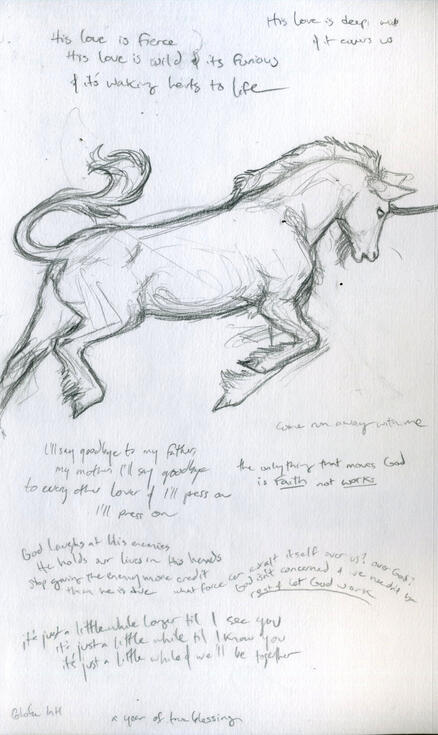 His love is deep, and
it covers us
His love is fierce
His love is wild & its furious
& it's waking hearts to life
come run away with me
I'll say goodbye to my father,
my mother I'll say goodbye
to every other lover & I'll press on
I'll press on
the only thing that moves God
is Faith not works
God laughs at His enemies
He holds our lives in His hands
stop giving the enemy more credit
than he is due
what force can exalt itself over us? over God?
God isn't concerned & we needn't be
rest & let God work
it's just a little while longer til I see you
it's just a little while til I know you
it's just a little while & we'll be together
a year of true blessing